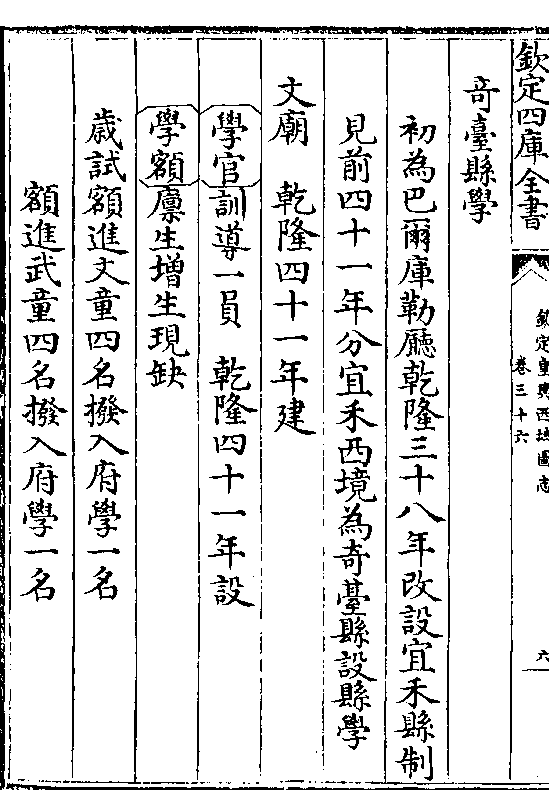 欽定四庫全書
欽定皇輿西域圖志
卷三十六
六
竒臺縣學
初為巴爾庫勒廳乾隆三十八年改設宜禾縣制
見前四十一年分宜禾西境為竒臺縣設縣學
文廟　乾隆四十一年建
學官訓導一員　乾隆四十一年設
學額廪生增生現缺
歲試額進文童四名撥入府學一名
額進武童四名撥入府學一名